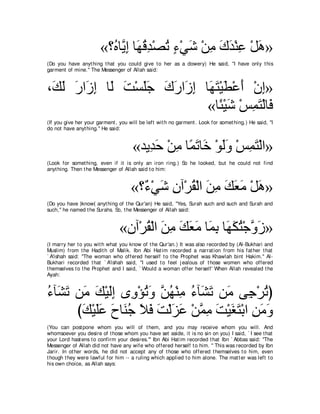 «هَلْ عِنْدَكَ مِنْ شَيْءٍ تُصْدِقُهَا إِيَّاهُ؟»
(Do you have anything that you could give to her as a dowery) He said, "I have only this
garment of mine.'' The Messenger of Allah said:
«إِنْ أَعْطَيْتَهَا إِزَارَكَ جَلَسْتَ لَا إِزَارَ لَكَ،
فَالْتَمِسْ شَيْئًا»
(If you give her your garment, you will be left with no garment. Look for something.) He said, "I
do not have anything.'' He said:
«الْتَمِسْ وَلَوْ خَاتَمًا مِنْ حَدِيدٍ»
(Look for something, even if it is only an iron ring.) So he looked, but he could not find
anything. Then the Messenger of Allah said to him:
«هَلْ مَعَكَ مِنَ الْقُرْآنِ شَيْءٌ؟»
(Do you have (know) anything of the Qur'an) He said, "Yes, Surah such and such and Surah and
such,'' he named the Surahs. So, the Messenger of Allah said:
«زَوَّجْتُكَهَا بِمَا مَعَكَ مِنَ الْقُرْآنِ»
(I marry her to you with what you know of the Qur'an.) It was also recorded by (Al-Bukhari and
Muslim) from the Hadith of Malik. Ibn Abi Hatim recorded a narration from his father that
`A'ishah said: "The woman who offered herself to the Prophet was Khawlah bint Hakim.'' Al-
Bukhari recorded that `A'ishah said, "I used to feel jealous of those women who offered
themselves to the Prophet and I said, `Would a woman offer herself' When Allah revealed the
Ayah:
(تُرْجِى مَن تَشَآءُ مِنْهُنَّ وَتُؤْوِى إِلَيْكَ مَن تَشَآءُ
وَمَنِ ابْتَغَيْتَ مِمَّنْ عَزَلْتَ فَلاَ جُنَاحَ عَلَيْكَ)
(You can postpone whom you will of them, and you may receive whom you will. And
whomsoever you desire of those whom you have set aside, it is no sin on you) I said, `I see that
your Lord hastens to confirm your desires.''' Ibn Abi Hatim recorded that Ibn `Abbas said: "The
Messenger of Allah did not have any wife who offered herself to him. '' This was recorded by Ibn
Jarir. In other words, he did not accept any of those who offered themselves to him, even
though they were lawful for him -- a ruling which applied to him alone. The matter was left to
his own choice, as Allah says: